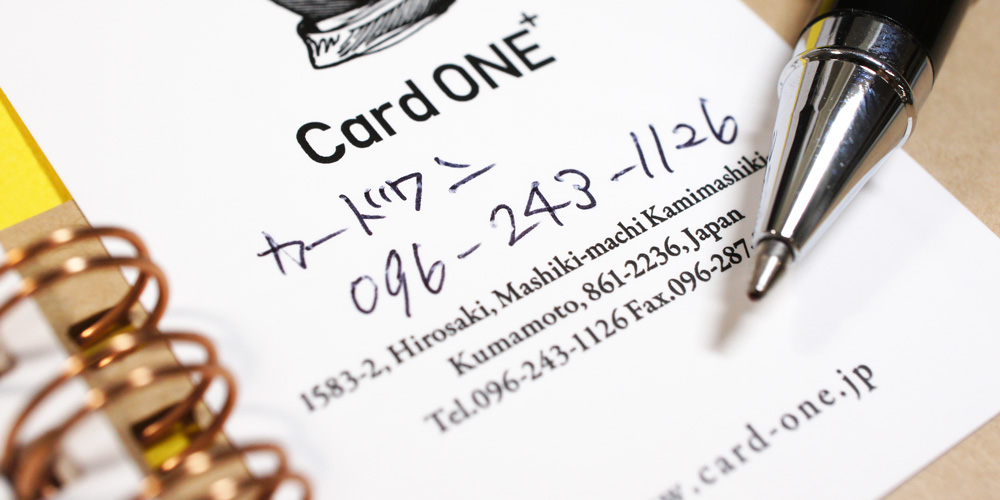 Card ONE+
カードワン
096-243-1126
1583-2, Hirosaki, Mashiki-machi Kamimashiki
Kumamoto, 861-2236, Japan
Tel.096-243-1126 Fax.096-287-
w.card-one.jp